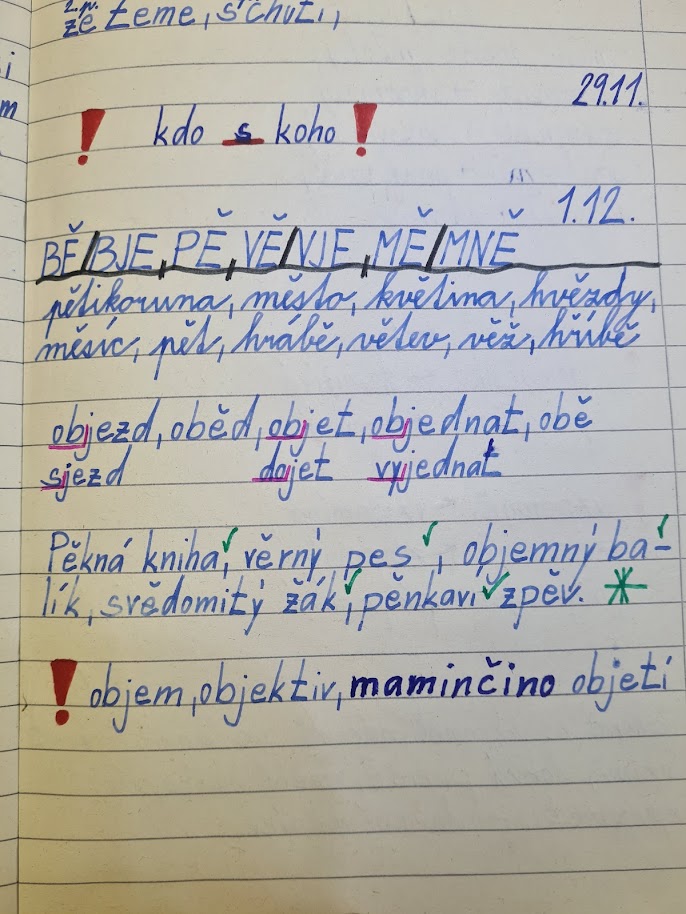 ze teme, s chutí,
29.11.
! kdo s koho !
1.12.
BĚ/BJE, PĚ, VĚ/VJE, MĚ/MNĚ
pětikoruna, město, květina, hvězdy,
měsíc, pět, hrábě, větev, věž, hříbě
objezd, oběd, objet, objednat, obě
sjezd dojet vyjednat
Pěkná kniha, věrný pes, objemný ba-
lík, svědomitý žák, pěnkaví zpěv.
! objem, objektiv, maminčino objetí